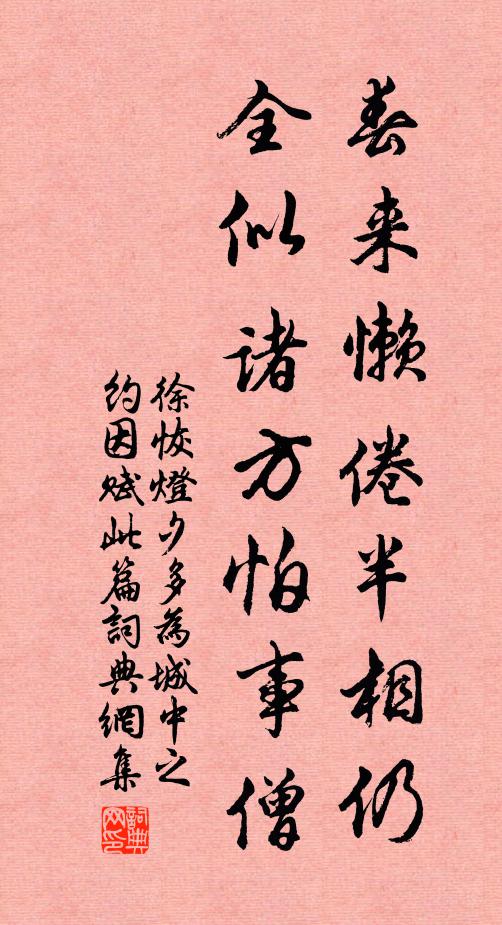 春来懒倦半相仍
全似诸方怕事僧
徐恢燈夕多為城中之
約因赋此篇詞典網集
詞典网印